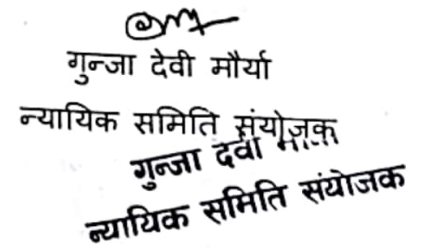 गुन्जा देवी मौर्या
न्यायिक समिति संयोजक
गुन्जा देवी
न्यायिक समिति संयोजक